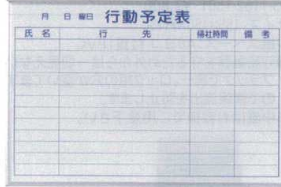 月 日 曜日 行動予定表
氏名 行先 帰社時間 備考